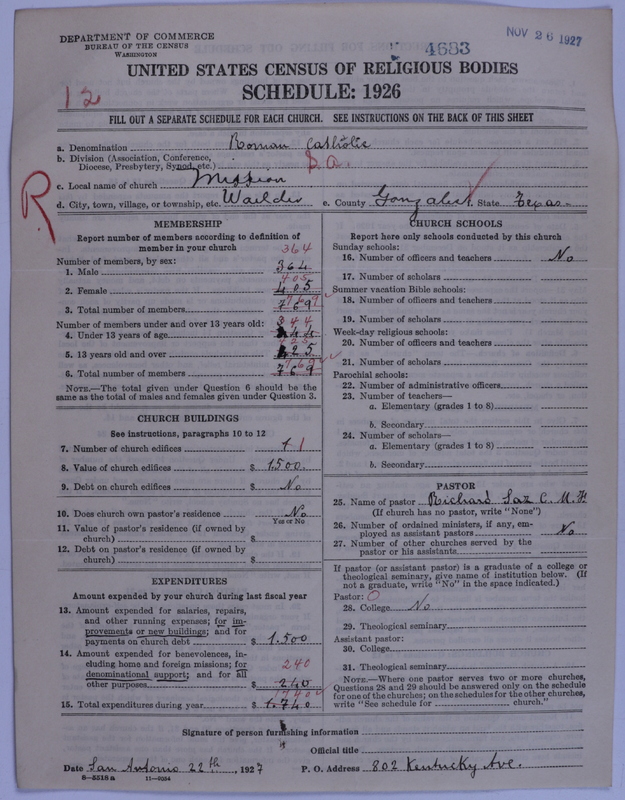 DEPARTMENT OF COMMERCE
BUREAU OF THE CENSUS
WASHINGTON
4683
NOV 26 1927
UNITED STATES CENSUS OF RELIGIOUS BODIES
SCHEDULE: 1926
12
FILL OUT A SEPARATE SCHEDULE FOR EACH CHURCH. SEE INSTRUCTIONS ON THE BACK OF THIS SHEET
a. Denomination Roman Catholic
b. Division (Association, Conference, Diocese, Presbytery, Synod, etc.) S.A.
R
c. Local name of church Mission
d. City, town, village, or township, etc. Waelder e. County Gonzales f. State Texas
MEMBERSHIP
Report number of members according to definition of member in your church
364
Number of members, by sex:
1. Male 364
405
2. Female 405
769
3. Total number of members 769
Number of members under and over 13 years old: 344
4. Under 13 years of age 344
425
5. 13 years old and over 425
769
6. Total number of members 769
NOTE.—The total given under Question 6 should be the same as the total of males and females given under Question 3.
CHURCH BUILDINGS
See instructions, paragraphs 10 to 12
7. Number of church edifices 1 1
8. Value of church edifices $ 1.500.
9. Debt on church edifices $ No
10. Does church own pastor's residence No
Yes or No
11. Value of pastor's residence (if owned by church) $
12. Debt on pastor's residence (if owned by church) $
EXPENDITURES
Amount expended by your church during last fiscal year
13. Amount expended for salaries, repairs, and other running expenses; for improvements or new buildings; and for payments on church debt $ 1.500
14. Amount expended for benevolences, including home and foreign missions; for denominational support; and for all other purposes $ 240
240
1740
15. Total expenditures during year $ 1.740
CHURCH SCHOOLS
Report here only schools conducted by this church
Sunday schools:
16. Number of officers and teachers No
17. Number of scholars
Summer vacation Bible schools:
18. Number of officers and teachers
19. Number of scholars
Week-day religious schools:
20. Number of officers and teachers
21. Number of scholars
Parochial schools:
22. Number of administrative officers
23. Number of teachers—
a. Elementary (grades 1 to 8)
b. Secondary
24. Number of scholars—
a. Elementary (grades 1 to 8)
b. Secondary
PASTOR
25. Name of pastor Richard Saz C. M. F.
(If church has no pastor, write "None")
26. Number of ordained ministers, if any, employed as assistant pastors No
27. Number of other churches served by the pastor or his assistants
If pastor (or assistant pastor) is a graduate of a college or theological seminary, give name of institution below. (If not a graduate, write "No" in the space indicated.)
Pastor: 0
28. College No
29. Theological seminary
Assistant pastor:
30. College
31. Theological seminary
NOTE.—Where one pastor serves two or more churches, Questions 28 and 29 should be answered only on the schedule for one of the churches; on the schedules for the other churches, write "See schedule for church."
Signature of person furnishing information
Official title
Date San Antonio 22th, 1927 P. O. Address 802 Kentucky Ave.
8—5518a 11—9054